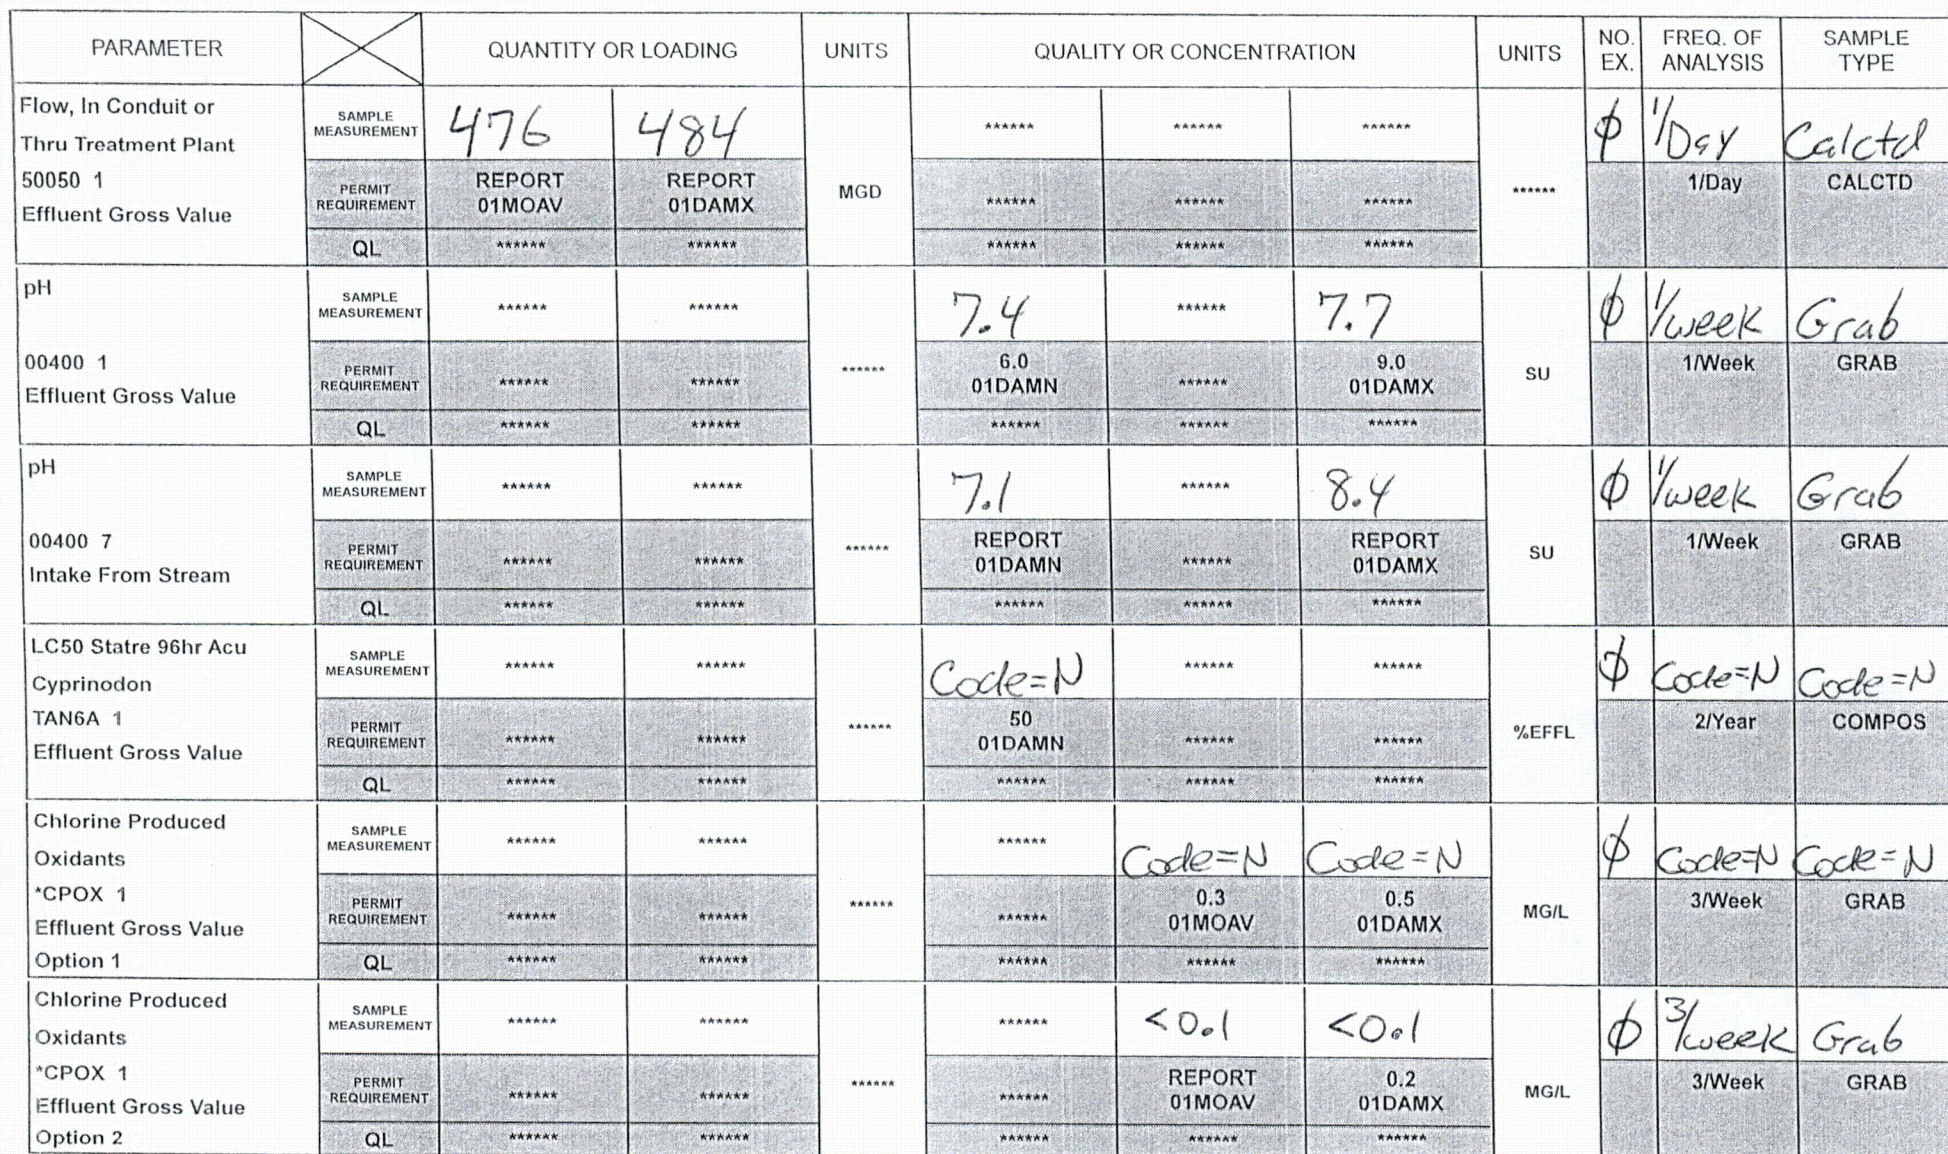 PARAMETER QUANTITY OR LOADING UNITS QUALITY OR CONCENTRATION UNITS NO. EX. FREQ. OF ANALYSIS SAMPLE TYPE
Flow, In Conduit or
Thru Treatment Plant
50050 1
Effluent Gross Value
SAMPLE MEASUREMENT 476 484 ****** ****** ****** φ 1/Day Calctd
PERMIT REQUIREMENT REPORT 01MOAV REPORT 01DAMX MGD ****** ****** ****** ****** 1/Day CALCTD
QL ****** ****** ****** ****** ******
pH
00400 1
Effluent Gross Value
SAMPLE MEASUREMENT ****** ****** 7.4 ****** 7.7 φ 1/week Grab
PERMIT REQUIREMENT ****** ****** ****** 6.0 01DAMN ****** 9.0 01DAMX SU 1/Week GRAB
QL ****** ****** ****** ****** ******
pH
00400 7
Intake From Stream
SAMPLE MEASUREMENT ****** ****** 7.1 ****** 8.4 φ 1/week Grab
PERMIT REQUIREMENT ****** ****** ****** REPORT 01DAMN ****** REPORT 01DAMX SU 1/Week GRAB
QL ****** ****** ****** ****** ******
LC50 Statre 96hr Acu
Cyprinodon
TAN6A 1
Effluent Gross Value
SAMPLE MEASUREMENT ****** ****** Code=N ****** ****** φ Code=N Code=N
PERMIT REQUIREMENT ****** ****** ****** 50 01DAMN ****** ****** %EFFL 2/Year COMPOS
QL ****** ****** ****** ****** ******
Chlorine Produced
Oxidants
*CPOX 1
Effluent Gross Value
Option 1
SAMPLE MEASUREMENT ****** ****** ****** Code=N Code=N φ Code=N Code=N
PERMIT REQUIREMENT ****** ****** ****** ****** 0.3 01MOAV 0.5 01DAMX MG/L 3/Week GRAB
QL ****** ****** ****** ****** ******
Chlorine Produced
Oxidants
*CPOX 1
Effluent Gross Value
Option 2
SAMPLE MEASUREMENT ****** ****** ****** <0.1 <0.1 φ 3/week Grab
PERMIT REQUIREMENT ****** ****** ****** ****** REPORT 01MOAV 0.2 01DAMX MG/L 3/Week GRAB
QL ****** ****** ****** ****** ******